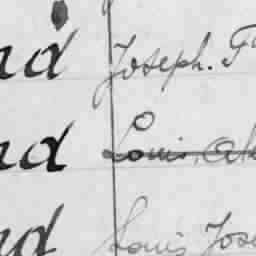 nd Joseph. F
nd Louis. A
nd Louis Jose